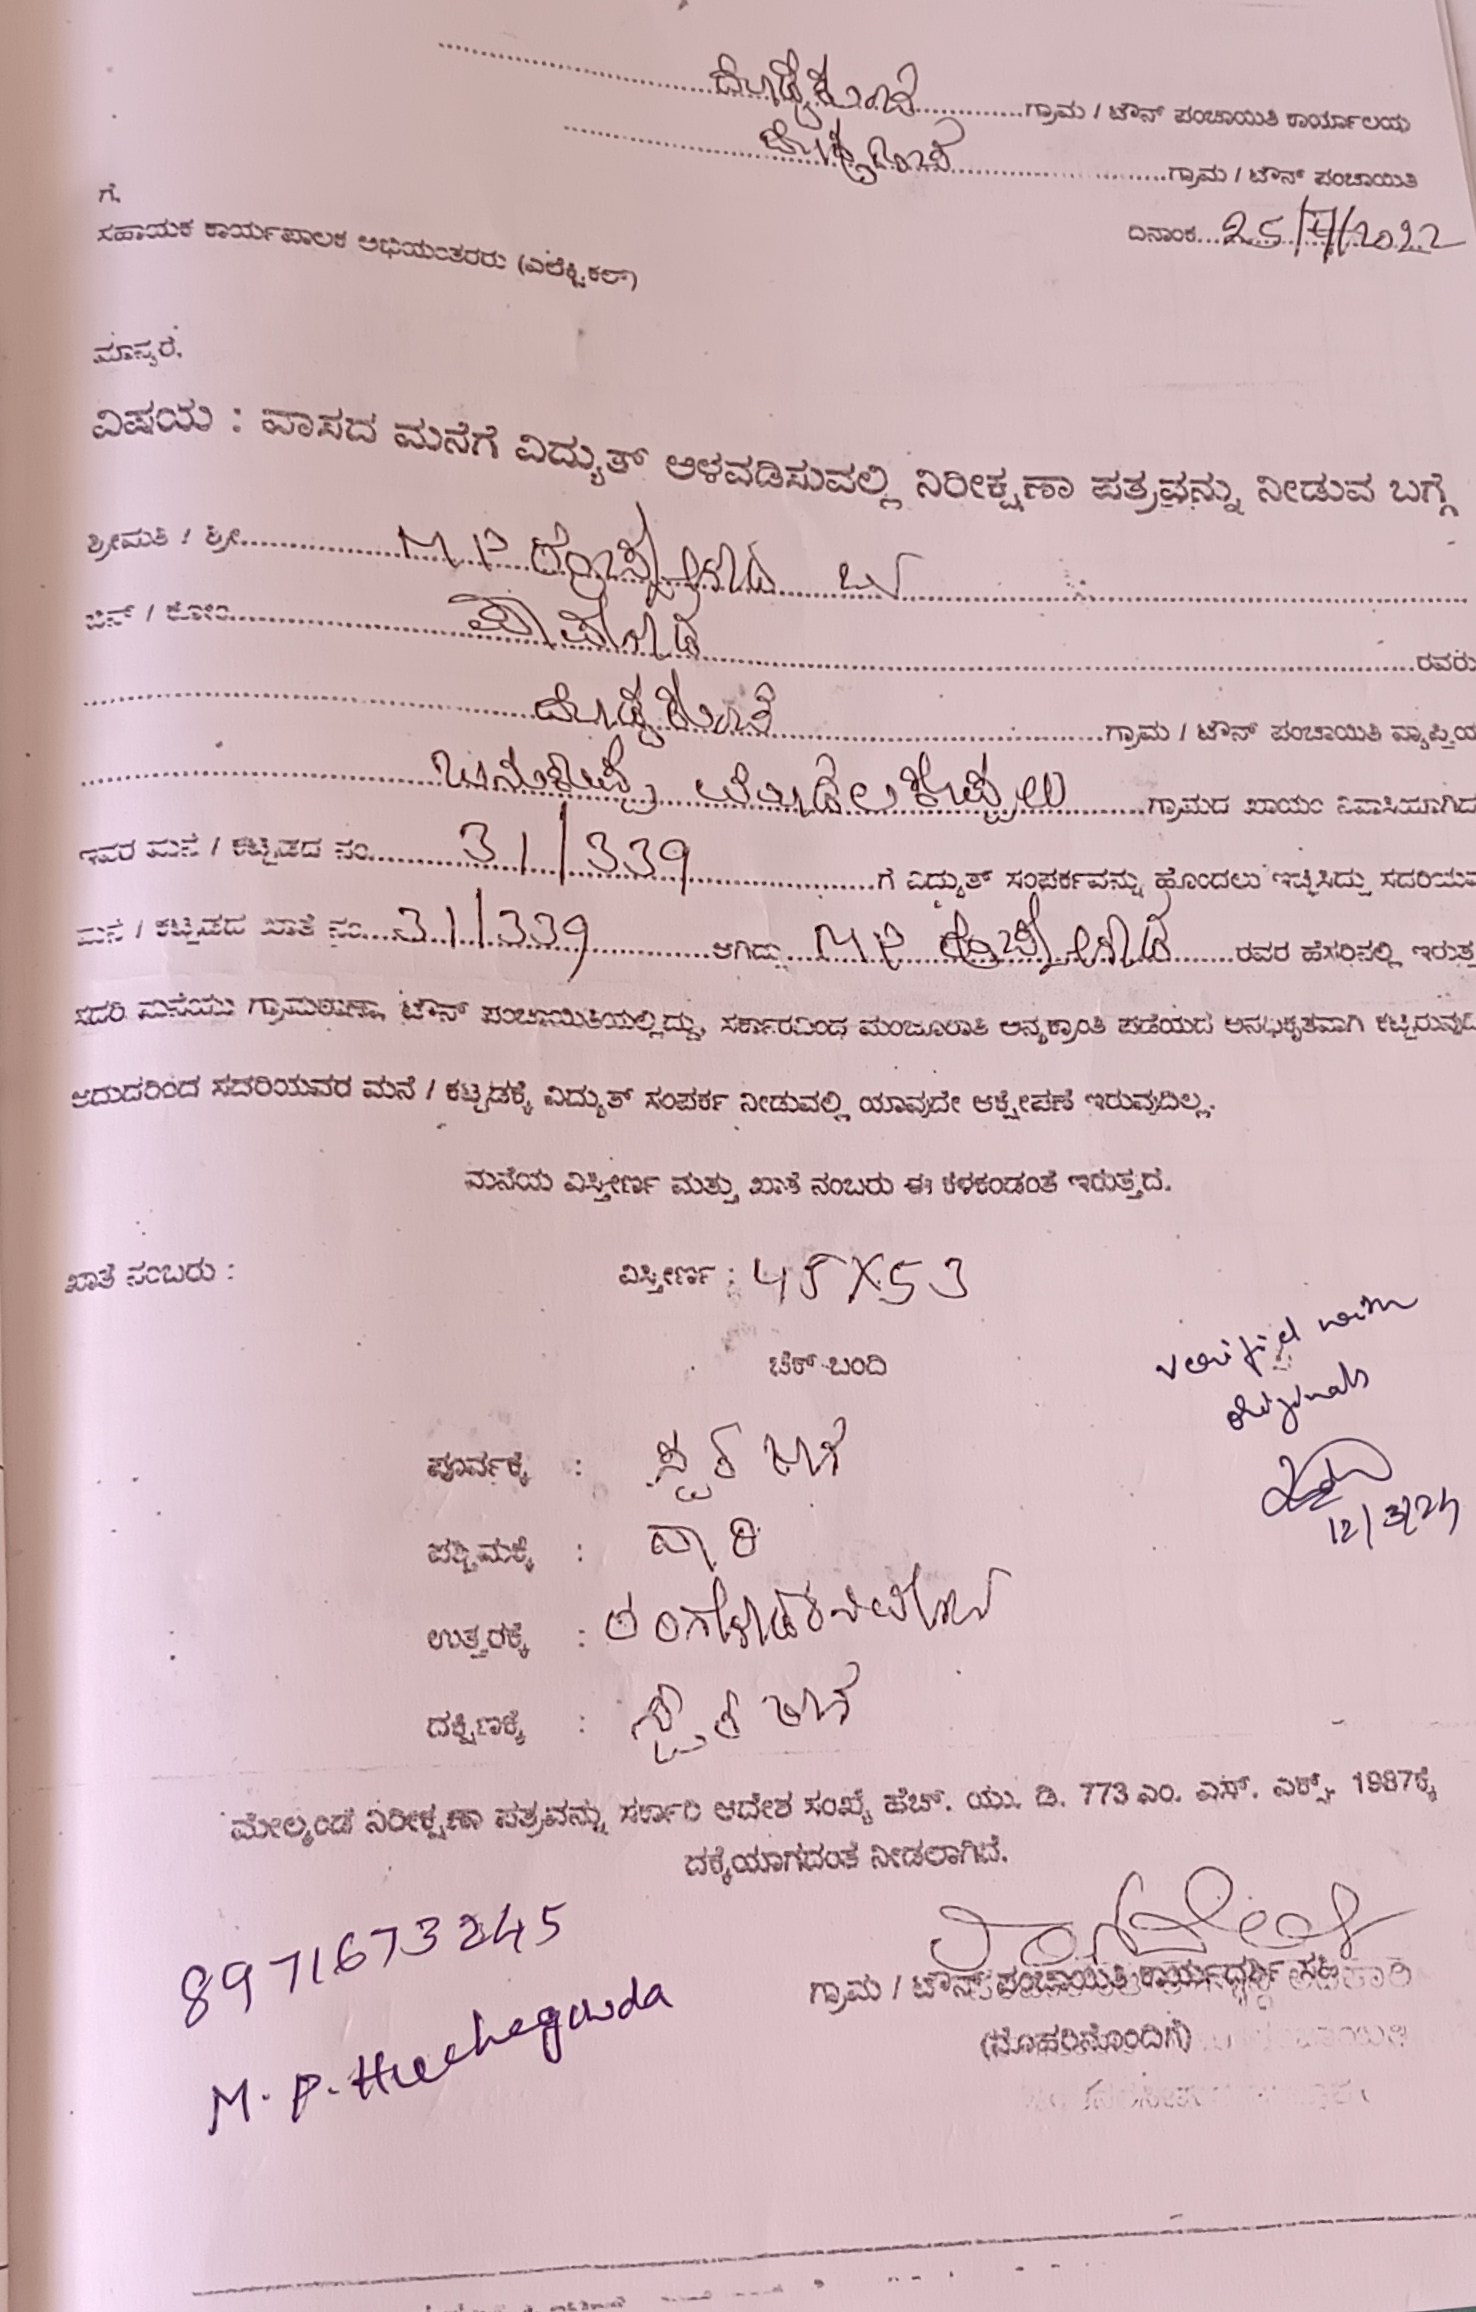 ದೊಡ್ಡಕುಂಚೆ ಗ್ರಾಮ / ಟೌನ್ ಪಂಚಾಯಿತಿ ಕಾರ್ಯಾಲಯ
ಗ್ರಾಮ / ಟೌನ್ ಪಂಚಾಯಿತಿ
ಗೆ,
ದಿನಾಂಕ 25/7/2022
ಸಹಾಯಕ ಕಾರ್ಯಪಾಲಕ ಅಭಿಯಂತರರು (ಎಲೆಕ್ಟ್ರಿಕಲ್)
ಮಾನ್ಯರೆ,
ವಿಷಯ : ವಾಸದ ಮನೆಗೆ ವಿದ್ಯುತ್ ಅಳವಡಿಸುವಲ್ಲಿ ನಿರೀಕ್ಷಣಾ ಪತ್ರವನ್ನು ನೀಡುವ ಬಗ್ಗೆ
ಶ್ರೀಮತಿ / ಶ್ರೀ M P
ಬಿನ್ / ಕೋಂ ಪಾಪೇಗೌಡ ರವರು
ದೊಡ್ಡಕುಂಚೆ ಗ್ರಾಮ / ಟೌನ್ ಪಂಚಾಯಿತಿ ವ್ಯಾಪ್ತಿಯ
ಗ್ರಾಮದ ಖಾಯಂ ನಿವಾಸಿಯಾಗಿದ
ಇವರ ಮನೆ / ಕಟ್ಟಡದ ನಂ 31/339 ಗೆ ವಿದ್ಯುತ್ ಸಂಪರ್ಕವನ್ನು ಹೊಂದಲು ಇಚ್ಛಿಸಿದ್ದು ಸದರಿಯವ
ಮನೆ / ಕಟ್ಟಡದ ಖಾತೆ ನಂ 31/339 ಆಗಿದ್ದು M P ರವರ ಹೆಸರಿನಲ್ಲಿ ಇರುತ್ತ
ಸದರಿ ಮನೆಯು ಗ್ರಾಮಠಾಣಾ, ಟೌನ್ ಪಂಚಾಯಿತಿಯಲ್ಲಿದ್ದು, ಸರ್ಕಾರದಿಂದ ಮಂಜೂರಾತಿ ಅನ್ಯಕ್ರಾಂತಿ ಪಡೆಯದೆ ಅನಧಿಕೃತವಾಗಿ ಕಟ್ಟಿರುವುದಿ
ಆದುದರಿಂದ ಸದರಿಯವರ ಮನೆ / ಕಟ್ಟಡಕ್ಕೆ ವಿದ್ಯುತ್ ಸಂಪರ್ಕ ನೀಡುವಲ್ಲಿ ಯಾವುದೇ ಆಕ್ಷೇಪಣೆ ಇರುವುದಿಲ್ಲ.
ಮನೆಯ ವಿಸ್ತೀರ್ಣ ಮತ್ತು ಖಾತೆ ನಂಬರು ಈ ಕೆಳಕಂಡಂತೆ ಇರುತ್ತದೆ.
ಖಾತೆ ನಂಬರು : ವಿಸ್ತೀರ್ಣ : 45X53
ಚೆಕ್ ಬಂದಿ
verified with
originals
12/3/24
ಪೂರ್ವಕ್ಕೆ : ಸ್ವಂತ ಜಾಗ
ಪಶ್ಚಿಮಕ್ಕೆ : ದಾರಿ
ಉತ್ತರಕ್ಕೆ :
ದಕ್ಷಿಣಕ್ಕೆ : ಸ್ವಂತ ಜಾಗ
ಮೇಲ್ಕಂಡ ನಿರೀಕ್ಷಣಾ ಪತ್ರವನ್ನು ಸರ್ಕಾರಿ ಆದೇಶ ಸಂಖ್ಯೆ ಹೆಚ್. ಯು. ಡಿ. 773 ಎಂ. ಎಸ್. ಎಕ್ಸ್. 1987ಕ್ಕೆ
ದಕ್ಕೆಯಾಗದಂತೆ ನೀಡಲಾಗಿದೆ.
8971673245
M. P. Huchegowda
ಗ್ರಾಮ / ಟೌನ್ ಪಂಚಾಯಿತಿ ಕಾರ್ಯದರ್ಶಿ ಸಹಿ
(ಮೊಹರಿನೊಂದಿಗೆ)